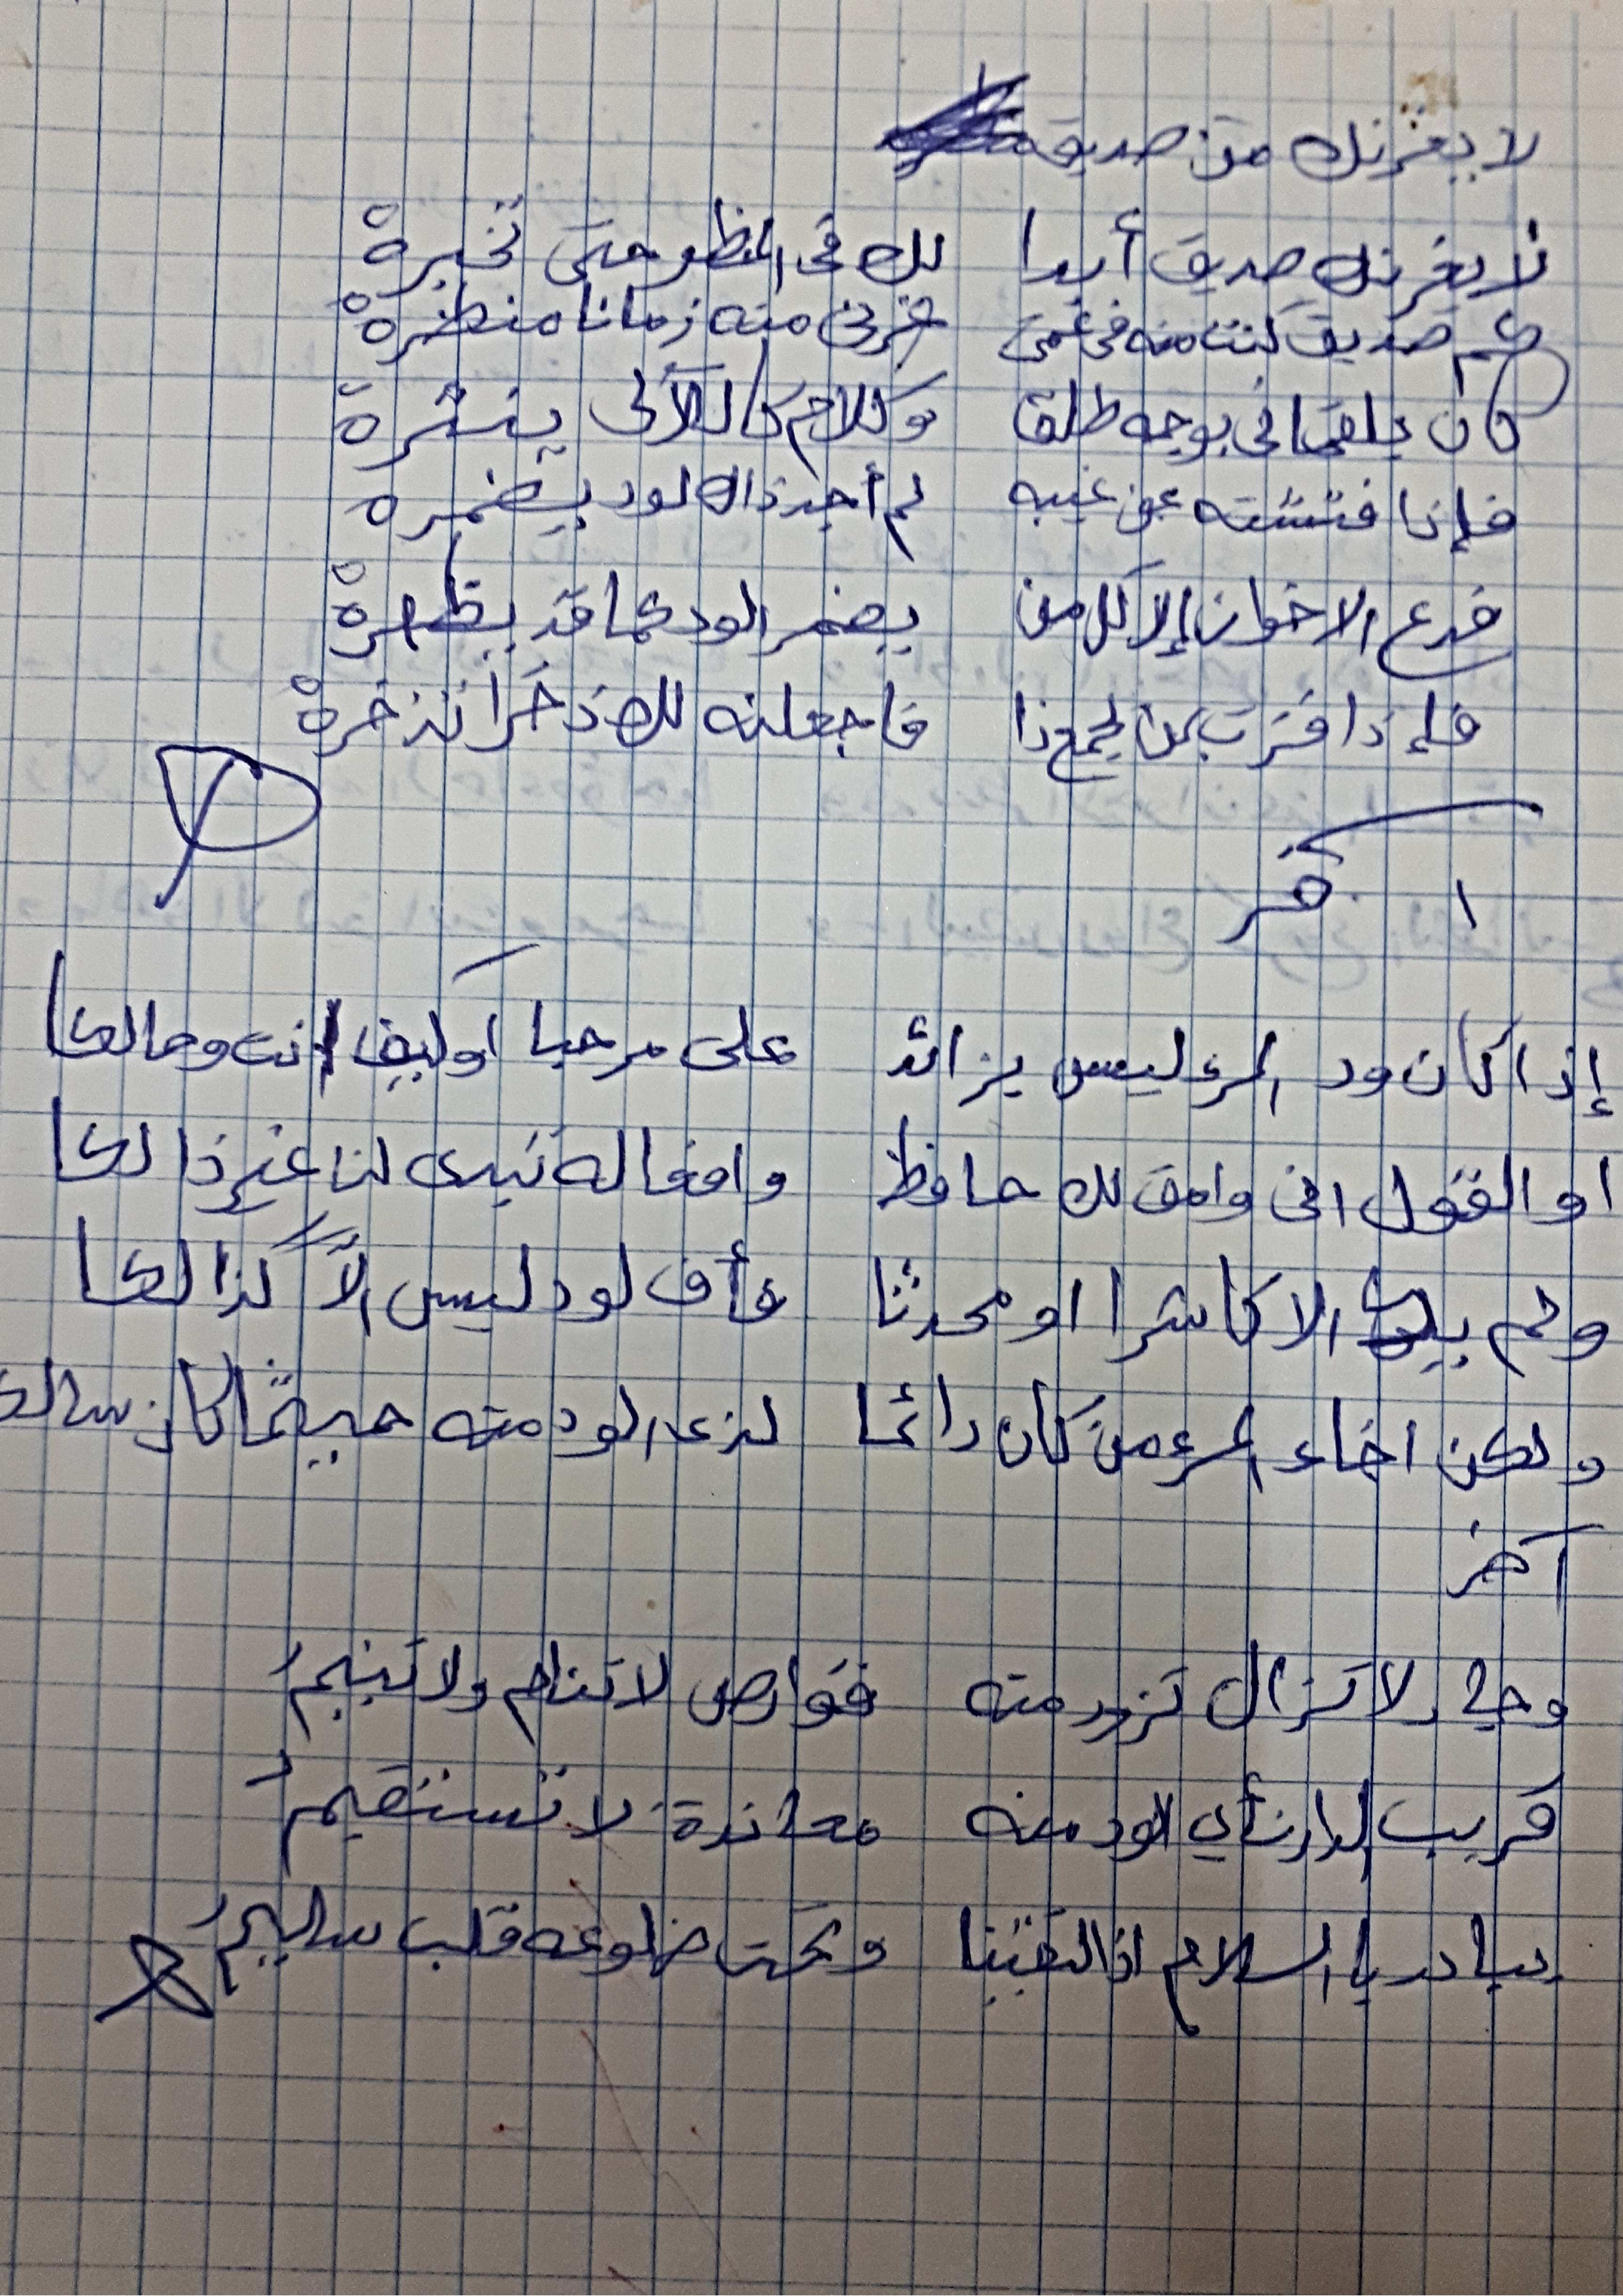 لا يغرنك من صديق
لا يغرنك صديق أبدا لك في المنظر حتى تخبرهْ
كم صديق كنت منه في عمى غرني منه زمانا منظرهْ
كان يلقاني بوجه طلق وكلام كاللآلى ينشره
فإذا فتشته عن غيبه لم أجد ذاك لود يضمره
فدع الاخوان إلا كل من يضمر الود كما قد يظهرهْ
فإذا فزت بمن يجمع ذا فاجعلنه لك ذخراً تذخرهْ
اخر
إذا كان ود المرء ليس بزائد على مرحبا او كيف انت وحالكا
او القول اني وامق لك حافظ وافعاله تبدى لنا غير ذالكا
ولم يك الا كاشرا او محدثا فأف لود ليس الاّ كذالكا
ولكن اخاء المرء من كان دائما لذى الود منه حيثما كان سالكا
آخر
وجار لا تزال تزور منه قوارص لا تنام ولا تنيمُ
قريب الدار نأي الود منه معاندة لا تستقيمُ
يبادر بالسلام اذا التقينا وتحت ضلوعه قلب سليمُ